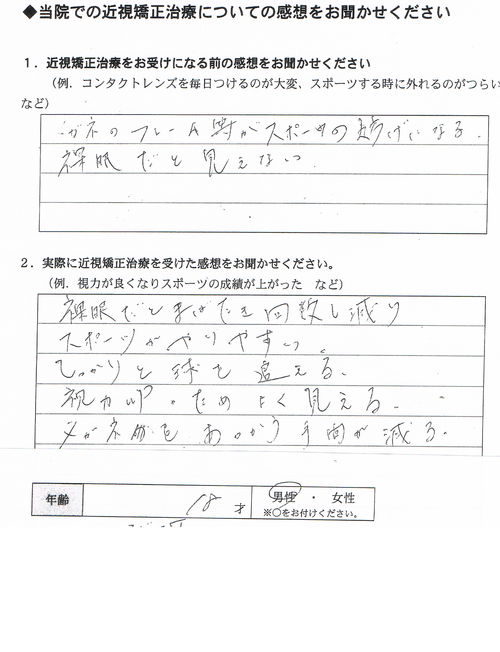 ◆当院での近視矯正治療についての感想をお聞かせください
1．近視矯正治療をお受けになる前の感想をお聞かせください
（例．コンタクトレンズを毎日つけるのが大変、スポーツする時に外れるのがつらい
など）
メガネのフレーム等がスポーツの妨げになる．
裸眼だと見えない．
2．実際に近視矯正治療を受けた感想をお聞かせください。
（例．視力が良くなりスポーツの成績が上がった　など）
裸眼だとまばたき回数も減り
スポーツがやりやすい
しっかりと球を追える．
視力UPのためよく見える．
メガネ等をあつかう手間が減る．
年齢 18 才 男性 ・ 女性
※○をお付けください。